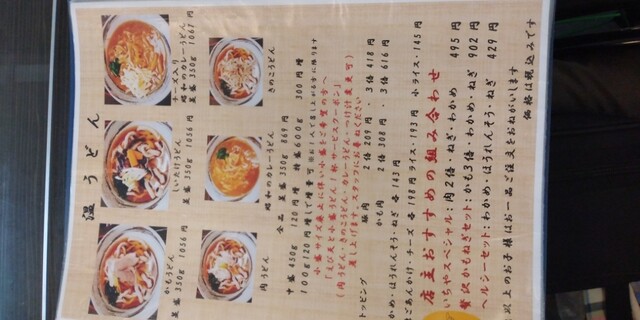 温うどん
チーズ入り
昭和のカレーうどん
並盛 350g 1061円
しいたけうどん
並盛 350g 1056円
かもうどん
並盛 350g 1056円
きのこうどん
昭和のカレーうどん
並盛 350g 869円
肉うどん
中盛 450g 120円増 特盛 600g 300円増
100g120円増しで増量可
小盛サイズ
ッピング
豚肉 2倍 209円・3倍 418円
かも肉 2倍 308円・3倍 616円
かめ・ほうれんそう・ねぎ 各143円
ごあんかけ・チーズ 各198円 ライス・193円 小ライス・145円
店主おすすめの組み合わせ
いちやスペシャル:肉2倍・ねぎ・わかめ 495円
贅沢かもねぎセット:かも3倍・わかめ・ねぎ 902円
ヘルシーセット:わかめ・ほうれんそう・ねぎ 429円
以上のお子様はお一品ご注文をおねがいします
価格は税込みです